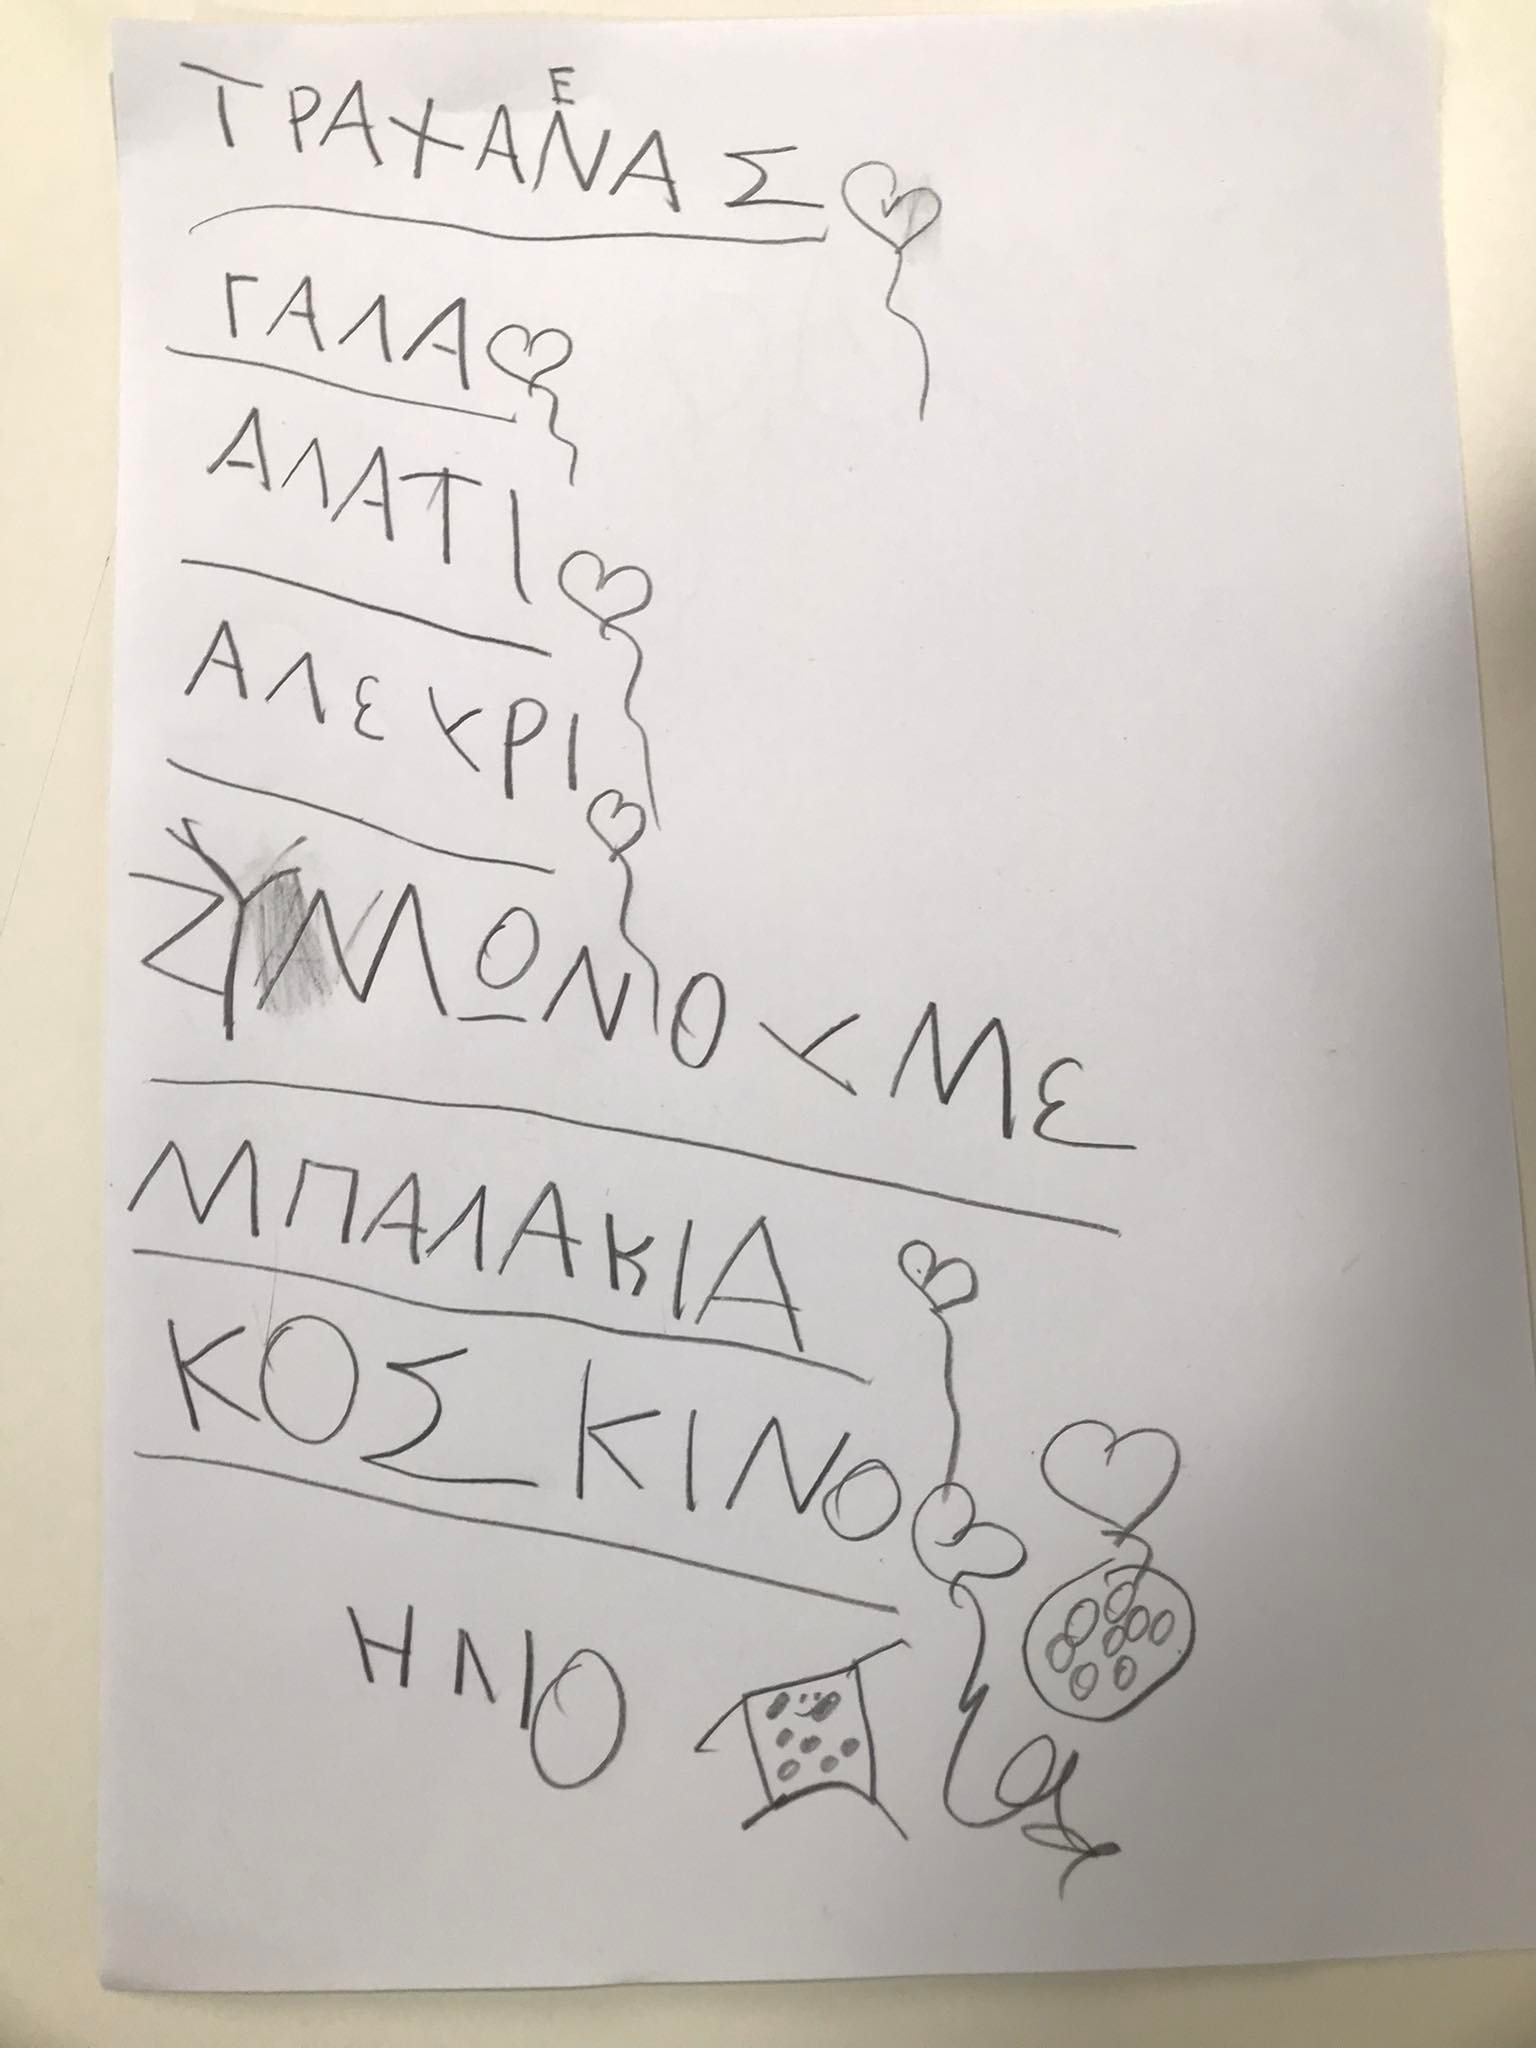 ΤΡΑΧΑΕΝΑΣ
ΓΑΛΑ
ΑΛΑΤΙ
ΑΛΕΥΡΙ
ΣΥΜΩΝΟΥΜΕ
ΜΠΑΛΑΚΙΑ
ΚΟΣΚΙΝΟ
ΗΛΙΟ